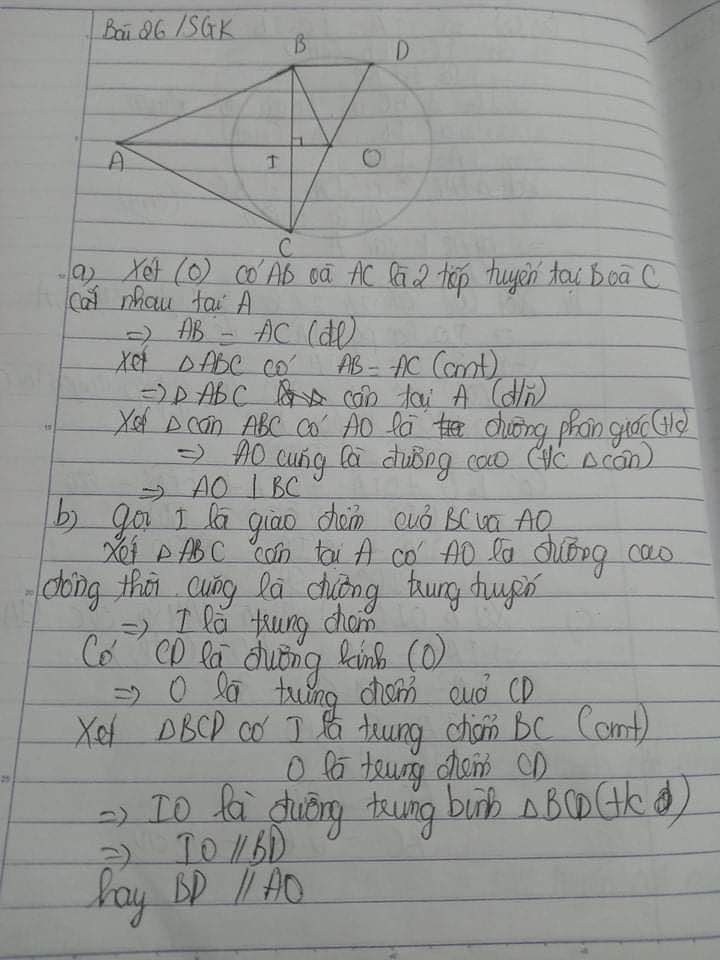 Bài 26/SGK
B D
A I O
C
a) Xét (O) có AB và AC là 2 tiếp tuyến tại B và C
cắt nhau tại A
=> AB = AC (đl)
Xét △ABC có AB = AC (cmt)
=> △ABC cân tại A (đ/n)
Xét △cân ABC có AO là đường phân giác (t/c)
=> AO cũng là đường cao (t/c △cân)
=> AO ⊥ BC
b) Gọi I là giao điểm cuả BC và AO
Xét △ABC cân tại A có AO là đường cao
đồng thời cũng là đường trung tuyến
=> I là trung điểm
Có CD là đường kính (O)
=> O là trung điểm cuả CD
Xét △BCD có I là trung điểm BC (cmt)
O là trung điểm CD
=> IO là đường trung bình △BCD
=> IO // BD
hay BD // AO